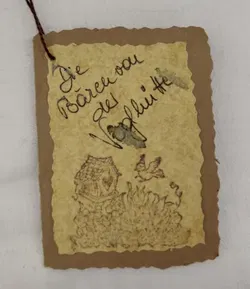 Die
Bären von
der
Vogelhütte